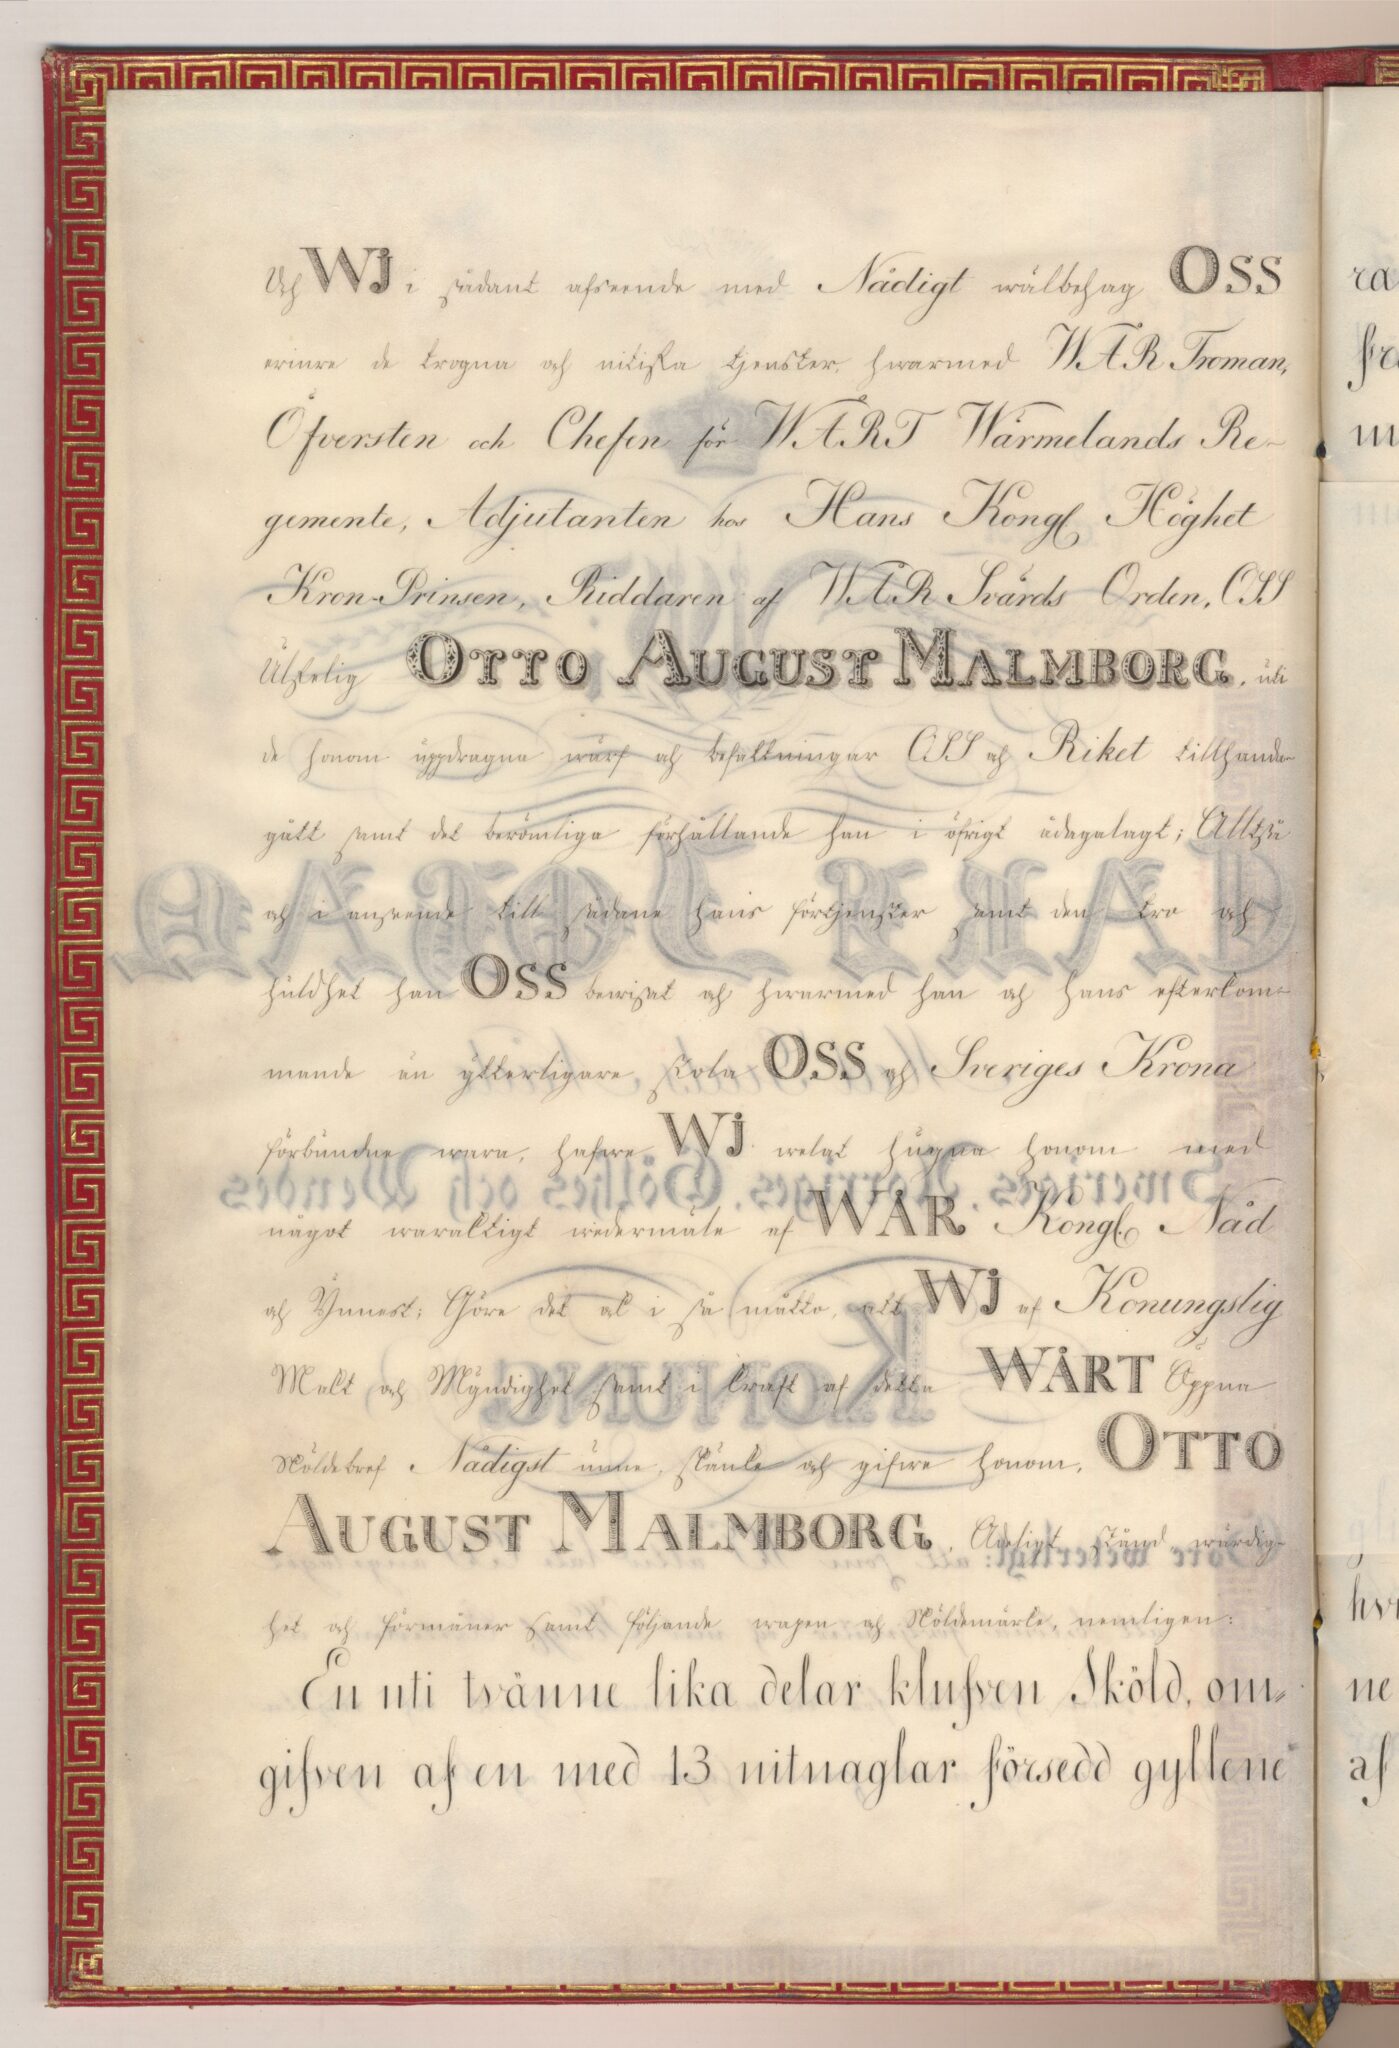 Och WJ i sådant afseende med Nådigt wälbehag OSS
erinre de trogna och nitiska tjenster, hwarmed WÅR Troman,
Öfversten och Chefen för WÅRT Wärmelands Re-
gemente, Adjutanten hos Hans Kongl. Höghet
Kron-Prinsen, Riddaren af WÅR Svärds Orden, OSS
Älskelig OTTO AUGUST MALMBORG, uti
de honom uppdragna wärf och befattningar OSS och Riket tillhanda-
gått samt det berömliga förhållande han i öfrigt ådagalagt; Alltså
och i anseende till sådane hans förtjenster samt den tro och
huldhet han OSS bewisat och hwarmed han och hans efterkom-
mande än ytterligare skola OSS och Sveriges Krona
förbundne wara, hafwe WJ welat hugna honom med
något waraktigt wedermäle af WÅR Kongl. Nåd
och Ynnest; Göre det ock i så måtto, att WJ af Konungslig
Makt och Myndighet samt i kraft af detta WÅRT Öppna
Sköldebref Nådigst unne, skänke och gifwe honom, OTTO
AUGUST MALMBORG, Adeligt stånd, wärdig-
het och förmåner samt följande wapen och Sköldemärke, nemligen:
En uti tvänne lika delar klufven Sköld, om-
gifven af en med 13 nitnaglar försedd gyllene
CARL JOHAN
Sweriges, Norriges, Göthes och Wendes
KONUNG
Göre weterligt: att
ra
fre
m
hvi
ne
af